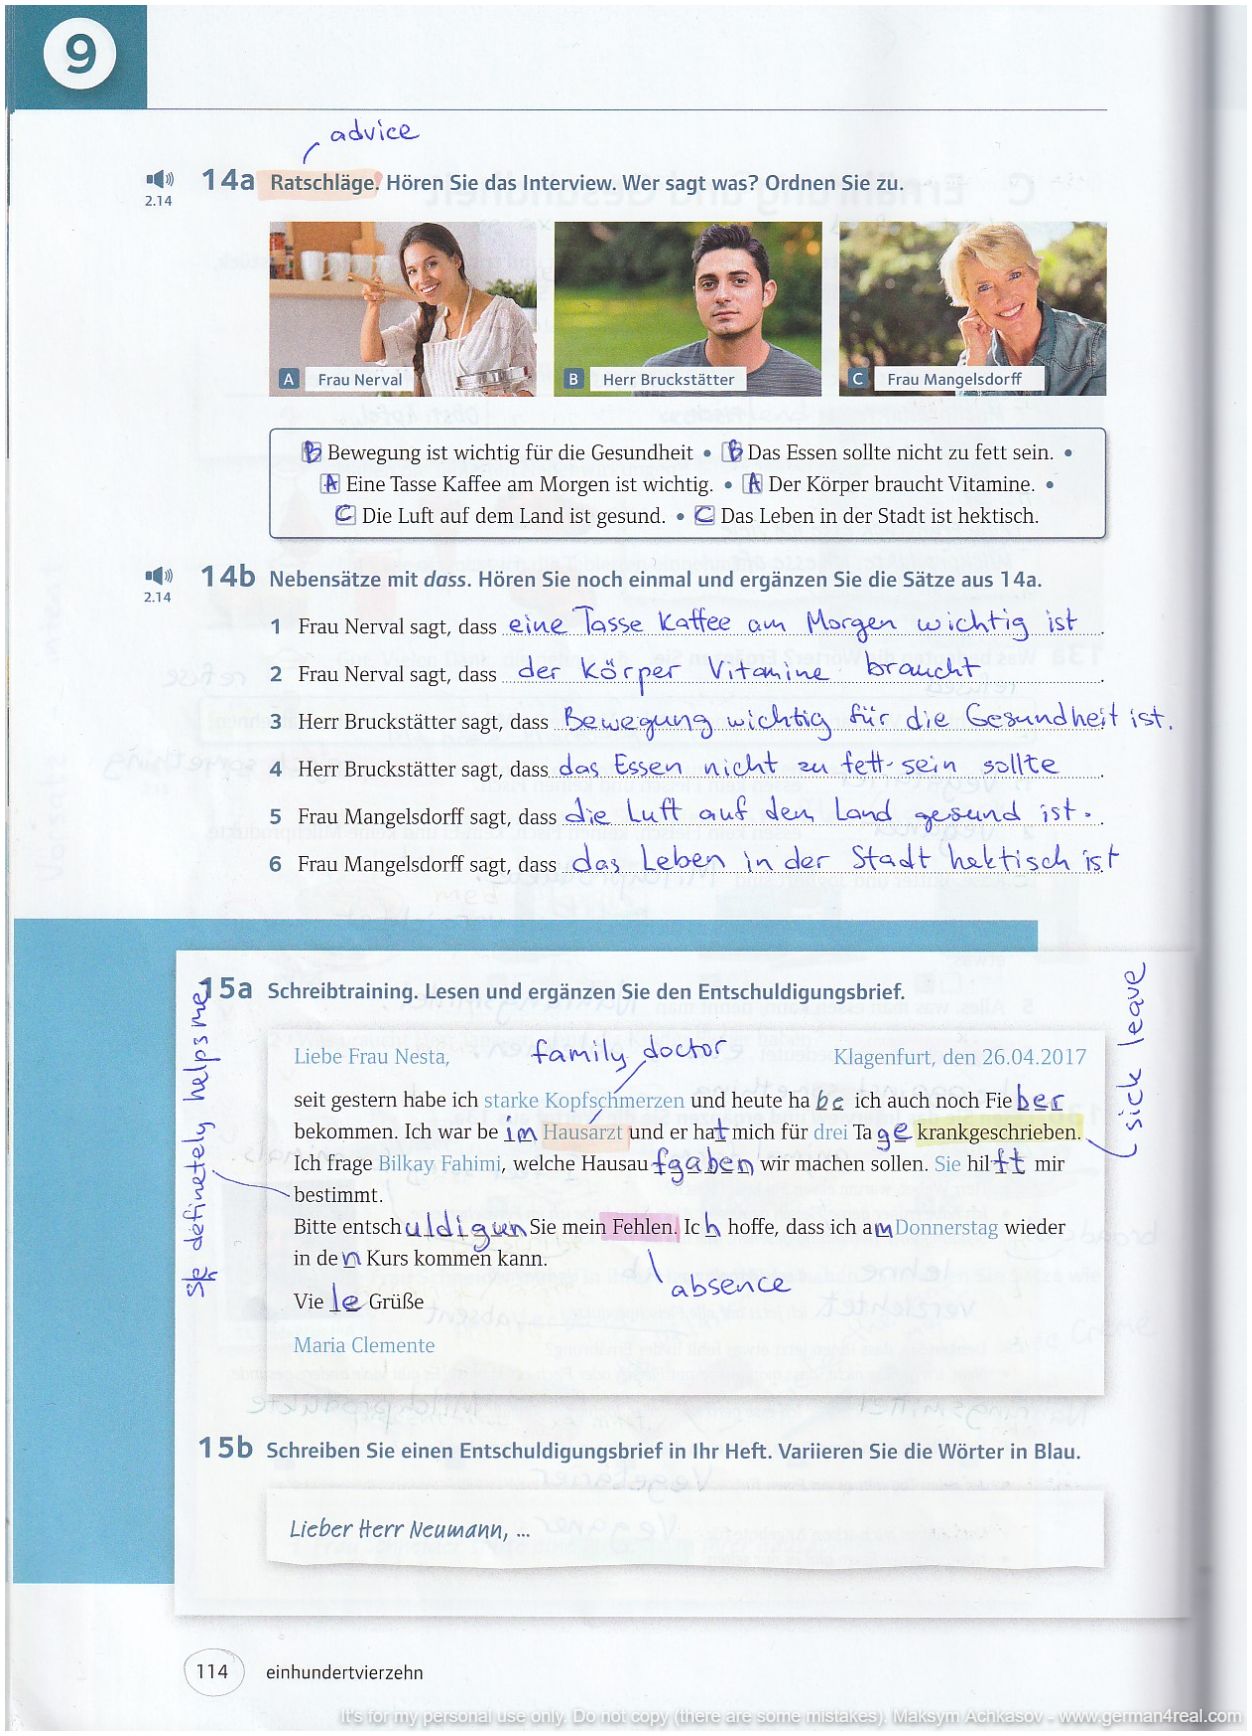 9
advice
2.14
14a Ratschläge. Hören Sie das Interview. Wer sagt was? Ordnen Sie zu.
A Frau Nerval
B Herr Bruckstätter
C Frau Mangelsdorff
B Bewegung ist wichtig für die Gesundheit • B Das Essen sollte nicht zu fett sein. •
A Eine Tasse Kaffee am Morgen ist wichtig. • A Der Körper braucht Vitamine. •
C Die Luft auf dem Land ist gesund. • C Das Leben in der Stadt ist hektisch.
2.14
14b Nebensätze mit dass. Hören Sie noch einmal und ergänzen Sie die Sätze aus 14a.
1 Frau Nerval sagt, dass eine Tasse Kaffee am Morgen wichtig ist.
2 Frau Nerval sagt, dass der Körper Vitamine braucht.
3 Herr Bruckstätter sagt, dass Bewegung wichtig für die Gesundheit ist.
4 Herr Bruckstätter sagt, dass das Essen nicht zu fett sein sollte.
5 Frau Mangelsdorff sagt, dass die Luft auf dem Land gesund ist.
6 Frau Mangelsdorff sagt, dass das Leben in der Stadt hektisch ist
15a Schreibtraining. Lesen und ergänzen Sie den Entschuldigungsbrief.
family doctor
Liebe Frau Nesta, Klagenfurt, den 26.04.2017
seit gestern habe ich starke Kopfschmerzen und heute habe ich auch noch Fieber
bekommen. Ich war beim Hausarzt und er hat mich für drei Tage krankgeschrieben.
sick leave
Ich frage Bilkay Fahimi, welche Hausaufgaben wir machen sollen. Sie hilft mir
bestimmt.
She definetely helps me
Bitte entschuldigun Sie mein Fehlen. Ich hoffe, dass ich am Donnerstag wieder
in den Kurs kommen kann.
absence
Viele Grüße
Maria Clemente
15b Schreiben Sie einen Entschuldigungsbrief in Ihr Heft. Variieren Sie die Wörter in Blau.
Lieber Herr Neumann, ...
114 einhundertvierzehn
It's for my personal use only. Do not copy (there are some mistakes). Maksym Achkasov - www.german4real.com